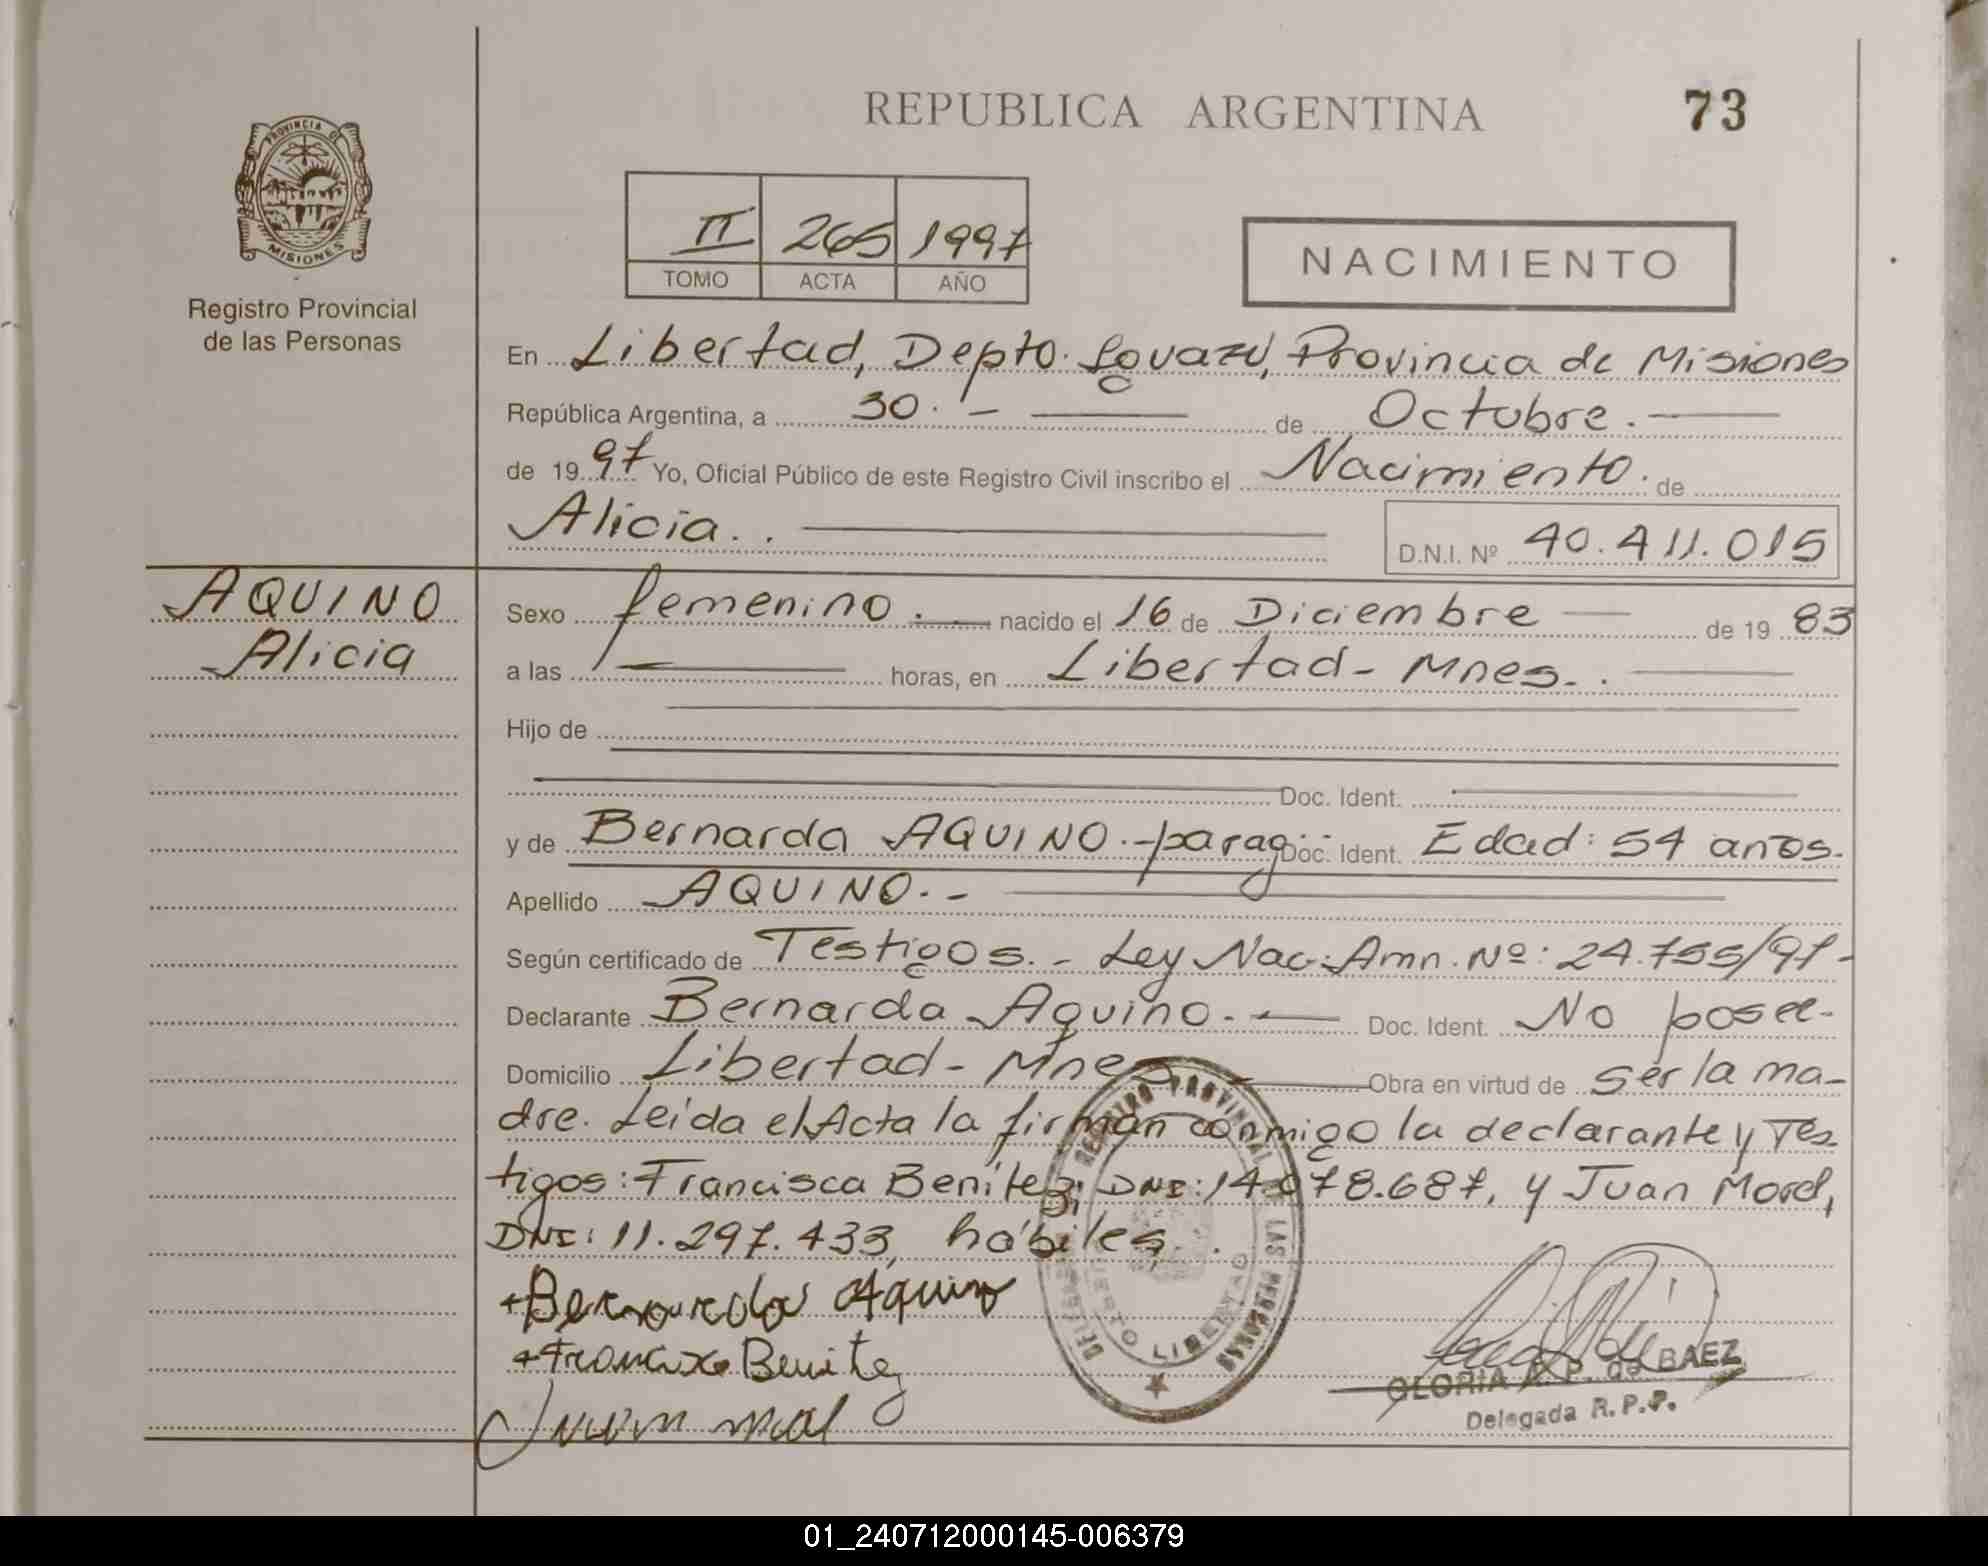 REPUBLICA ARGENTINA
73
PROVINCIA DE
MISIONES
Registro Provincial
de las Personas
II 265 1997
TOMO ACTA AÑO
NACIMIENTO
En Libertad, Depto. Iguazú, Provincia de Misiones
República Argentina, a 30.- de Octubre.
de 1997 Yo, Oficial Público de este Registro Civil inscribo el Nacimiento. de
Alicia..
D.N.I. Nº 40.411.015
AQUINO
Alicia
Sexo femenino. nacido el 16 de Diciembre de 1983
a las horas, en Libertad - Mnes..
Hijo de
Doc. Ident.
y de Bernarda AQUINO.-parag Doc. Ident. Edad: 54 años.
Apellido AQUINO.-
Según certificado de Testigos.- Ley Nac. Amn. Nº: 24.755/97-
Declarante Bernarda Aquino.- Doc. Ident. No posee-
Domicilio Libertad - Mnes Obra en virtud de ser la ma-
dre. Leída el Acta la firman conmigo la declarante y Tes
tigos: Francisca Benítez, DNI: 14.078.687, y Juan Morel,
DNI: 11.297.433, hábiles..
+Bernarda Aquino
+Francisca Benitez
Juan
REGISTRO PROVINCIAL DE LAS PERSONAS
PUERTO LIBERTAD
GLORIA P. de BAEZ
Delegada R.P.P.
01_240712000145-006379